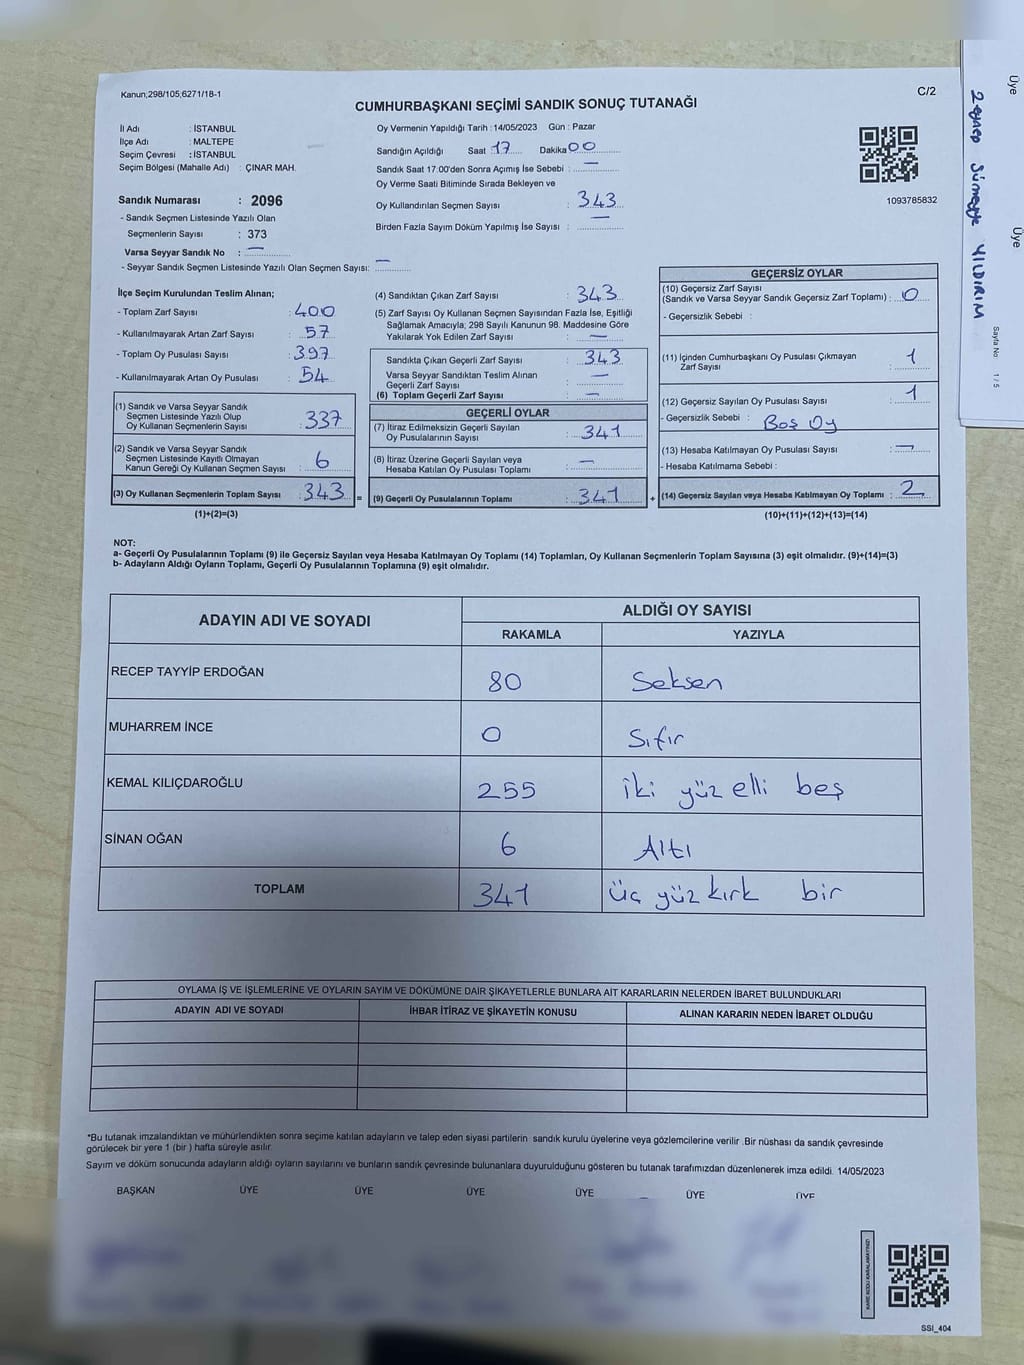 Kanun;298/105;6271/18-1
C/2
CUMHURBAŞKANI SEÇİMİ SANDIK SONUÇ TUTANAĞI
İl Adı : İSTANBUL
İlçe Adı : MALTEPE
Seçim Çevresi : İSTANBUL
Seçim Bölgesi (Mahalle Adı) : ÇINAR MAH.
Sandık Numarası : 2096
- Sandık Seçmen Listesinde Yazılı Olan
Seçmenlerin Sayısı : 373
Varsa Seyyar Sandık No : —
- Seyyar Sandık Seçmen Listesinde Yazılı Olan Seçmen Sayısı: —
Oy Vermenin Yapıldığı Tarih : 14/05/2023 Gün : Pazar
Sandığın Açıldığı Saat 17 Dakika 00
Sandık Saat 17:00'den Sonra Açımış İse Sebebi : —
Oy Verme Saati Bitiminde Sırada Bekleyen ve
Oy Kullandırılan Seçmen Sayısı : 343
Birden Fazla Sayım Döküm Yapılmış İse Sayısı : —
1093785832
İlçe Seçim Kurulundan Teslim Alınan;
- Toplam Zarf Sayısı : 400
- Kullanılmayarak Artan Zarf Sayısı : 57
- Toplam Oy Pusulası Sayısı : 397
- Kullanılmayarak Artan Oy Pusulası : 54
(1) Sandık ve Varsa Seyyar Sandık
Seçmen Listesinde Yazılı Olup
Oy Kullanan Seçmenlerin Sayısı : 337
(2) Sandık ve Varsa Seyyar Sandık
Seçmen Listesinde Kayıtlı Olmayan
Kanun Gereği Oy Kullanan Seçmen Sayısı : 6
(3) Oy Kullanan Seçmenlerin Toplam Sayısı : 343 =
(1)+(2)=(3)
(4) Sandıktan Çıkan Zarf Sayısı : 343
(5) Zarf Sayısı Oy Kullanan Seçmen Sayısından Fazla İse, Eşitliği
Sağlamak Amacıyla; 298 Sayılı Kanunun 98. Maddesine Göre
Yakılarak Yok Edilen Zarf Sayısı : —
Sandıkta Çıkan Geçerli Zarf Sayısı : 343
Varsa Seyyar Sandıktan Teslim Alınan
Geçerli Zarf Sayısı : —
(6) Toplam Geçerli Zarf Sayısı : —
GEÇERLİ OYLAR
(7) İtiraz Edilmeksizin Geçerli Sayılan
Oy Pusulalarının Sayısı : 341
(8) İtiraz Üzerine Geçerli Sayılan veya
Hesaba Katılan Oy Pusulası Toplamı : —
(9) Geçerli Oy Pusulalarının Toplamı : 341 +
GEÇERSİZ OYLAR
(10) Geçersiz Zarf Sayısı
(Sandık ve Varsa Seyyar Sandık Geçersiz Zarf Toplamı) : 0
- Geçersizlik Sebebi :
(11) İçinden Cumhurbaşkanı Oy Pusulası Çıkmayan
Zarf Sayısı : 1
(12) Geçersiz Sayılan Oy Pusulası Sayısı : 1
- Geçersizlik Sebebi : Boş Oy
(13) Hesaba Katılmayan Oy Pusulası Sayısı : —
- Hesaba Katılmama Sebebi :
(14) Geçersiz Sayılan veya Hesaba Katılmayan Oy Toplamı : 2
(10)+(11)+(12)+(13)=(14)
NOT:
a- Geçerli Oy Pusulalarının Toplamı (9) ile Geçersiz Sayılan veya Hesaba Katılmayan Oy Toplamı (14) Toplamları, Oy Kullanan Seçmenlerin Toplam Sayısına (3) eşit olmalıdır. (9)+(14)=(3)
b- Adayların Aldığı Oyların Toplamı, Geçerli Oy Pusulalarının Toplamına (9) eşit olmalıdır.
ADAYIN ADI VE SOYADI ALDIĞI OY SAYISI
RAKAMLA YAZIYLA
RECEP TAYYİP ERDOĞAN 80 Seksen
MUHARREM İNCE 0 Sıfır
KEMAL KILIÇDAROĞLU 255 iki yüz elli beş
SİNAN OĞAN 6 Altı
TOPLAM 341 üç yüz kırk bir
OYLAMA İŞ VE İŞLEMLERİNE VE OYLARIN SAYIM VE DÖKÜMÜNE DAİR ŞİKAYETLERLE BUNLARA AİT KARARLARIN NELERDEN İBARET BULUNDUKLARI
ADAYIN ADI VE SOYADI İHBAR İTİRAZ VE ŞİKAYETİN KONUSU ALINAN KARARIN NEDEN İBARET OLDUĞU
*Bu tutanak imzalandıktan ve mühürlendikten sonra seçime katılan adayların ve talep eden siyasi partilerin sandık kurulu üyelerine veya gözlemcilerine verilir .Bir nüshası da sandık çevresinde
görülecek bir yere 1 (bir ) hafta süreyle asılır.
Sayım ve döküm sonucunda adayların aldığı oyların sayılarını ve bunların sandık çevresinde bulunanlara duyurulduğunu gösteren bu tutanak tarafımızdan düzenlenerek imza edildi. 14/05/2023
BAŞKAN ÜYE ÜYE ÜYE ÜYE ÜYE ÜYE
SSİ_404
Üye
Üye
YILDIRIM
Sayfa No : 1 / 5